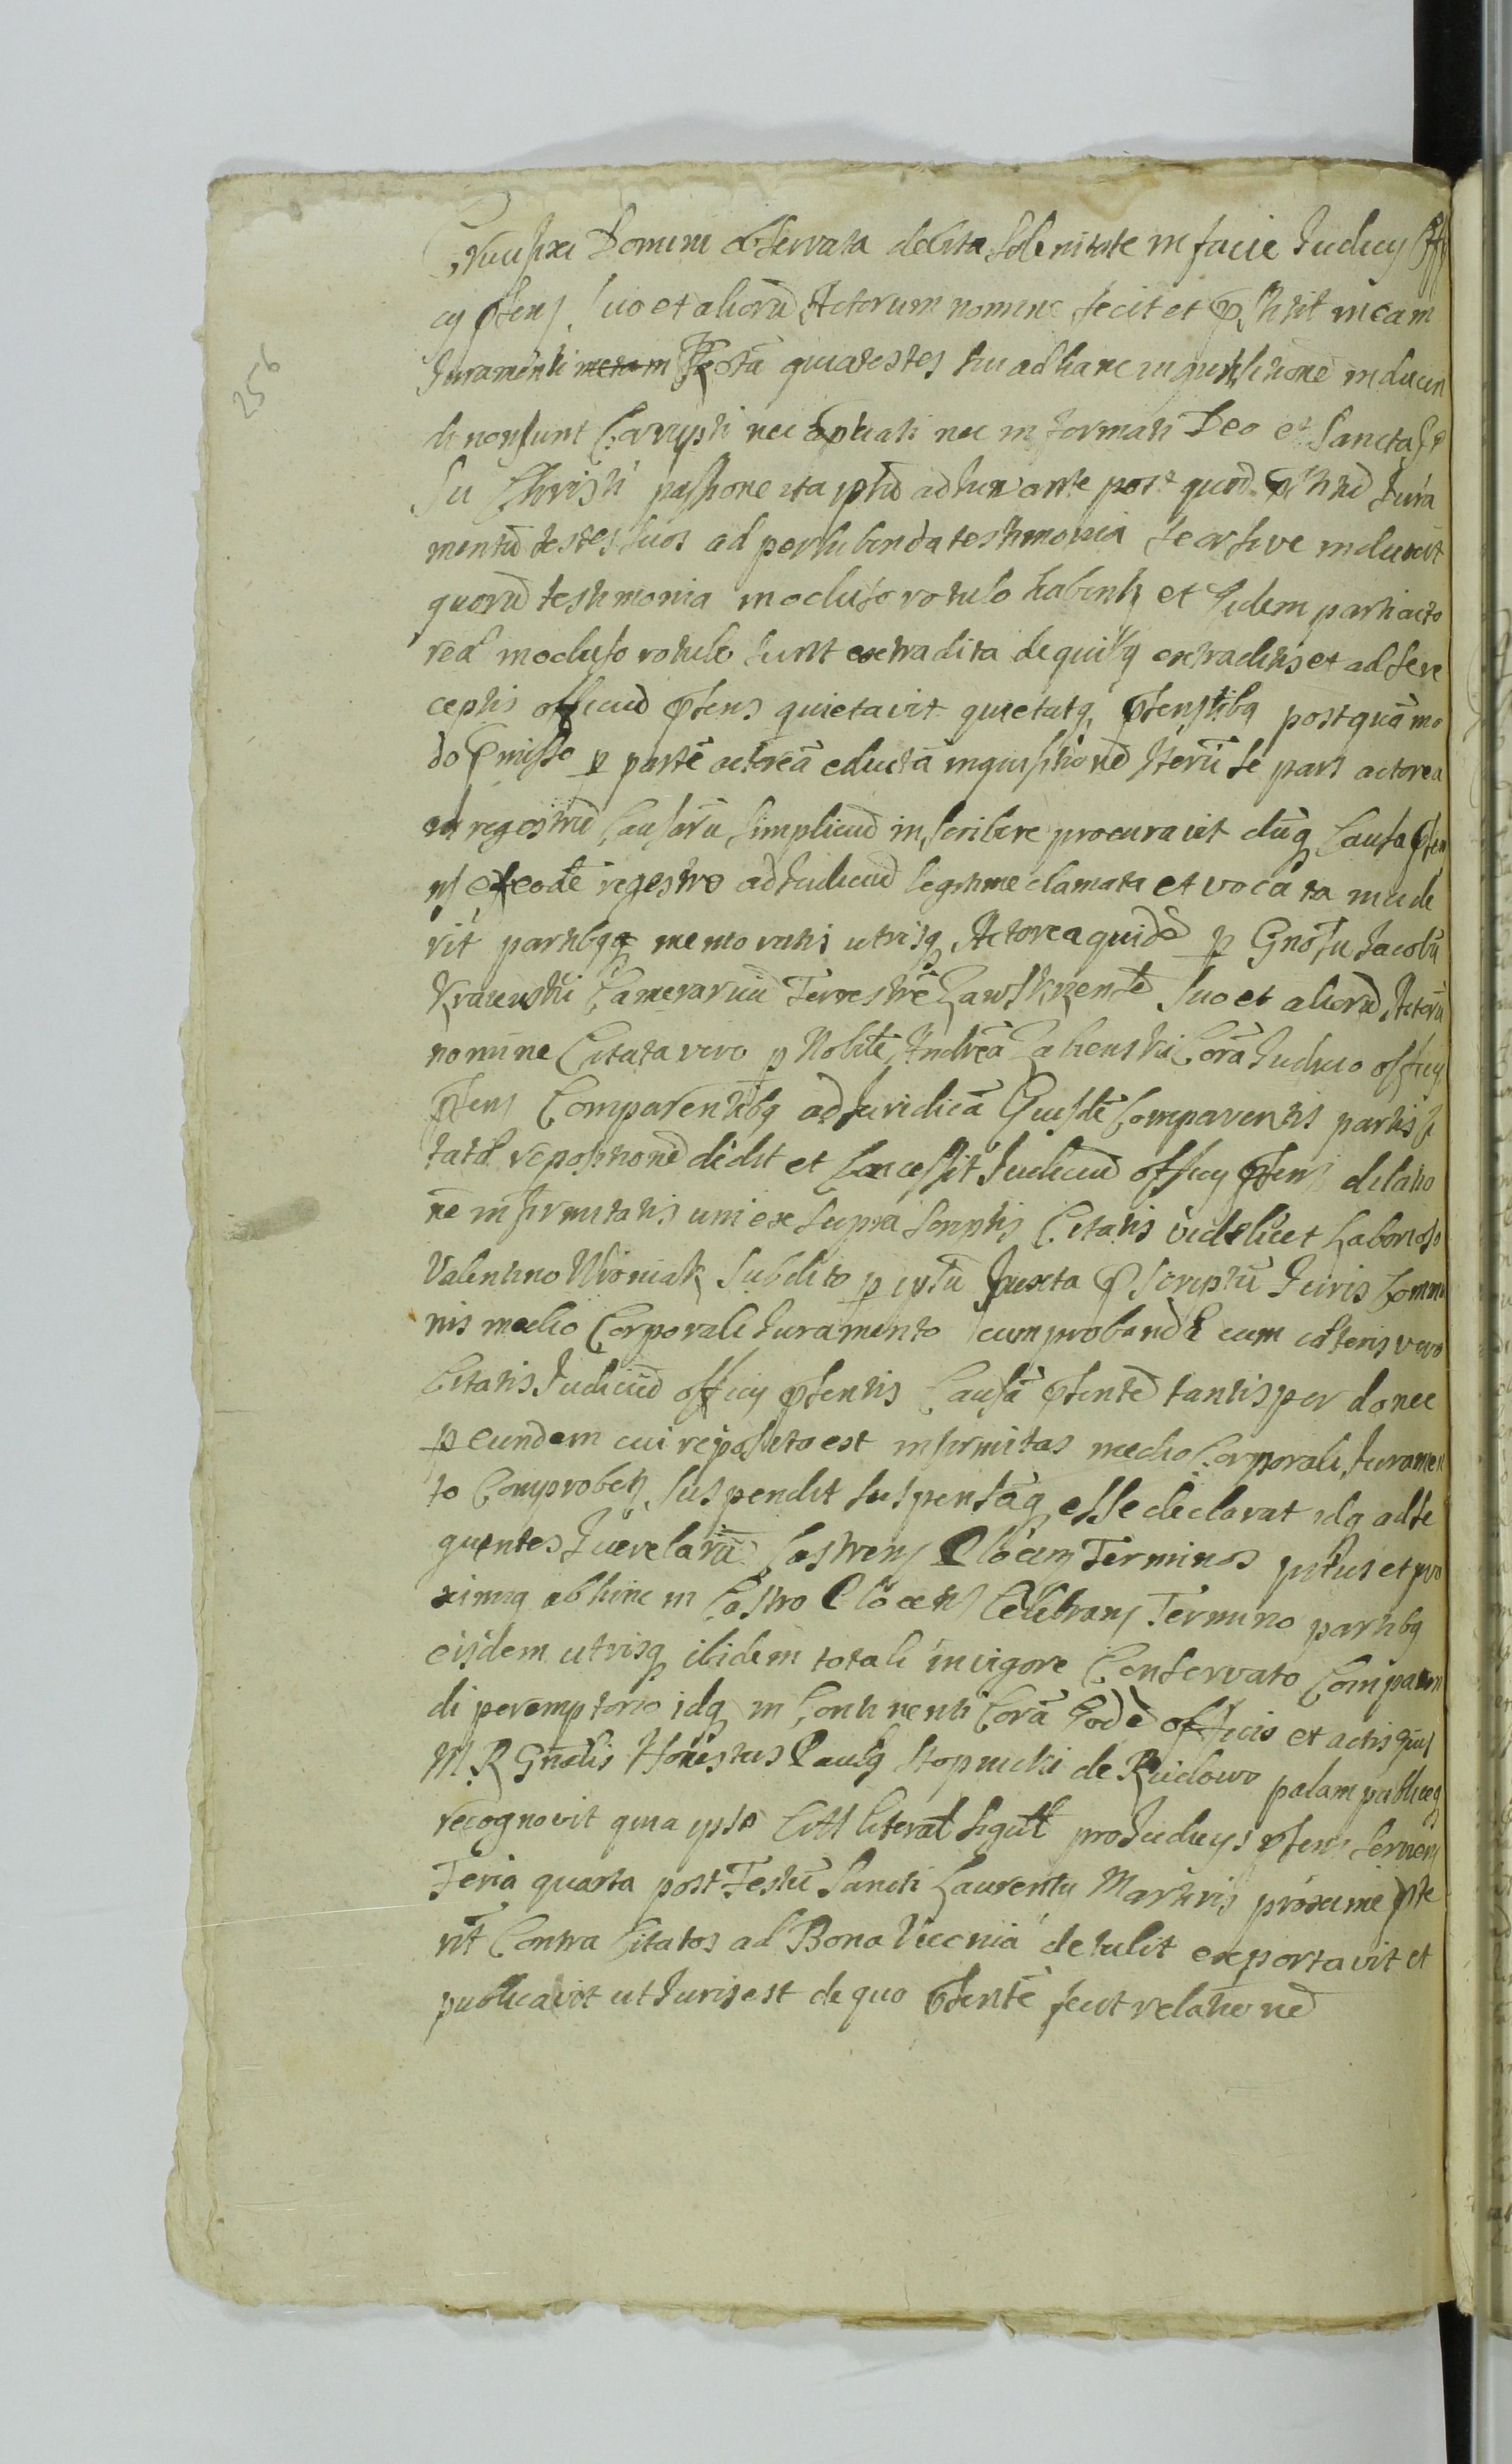 Crucifixi Domini observata debita solenitate in facie Judicy Offi
cy pñtens suo et aliorũ Actorum nomine fecit et p̃stitit in eam
Juramenti rotã quia testes sui ad hanc inquisitionẽ inducen
di non sunt Corrupti nec nec informati Deo et Sancta Je
su Christi passione ita ipsũ adiuvante post quod p̃stitũ Jura
mentũ testes suos ad perhibenda testimonia induxit
quorũ testimonia in ocluso rotulo habentr et eidem parti acto
reæ in ocluso rotulo sunt extradita de quibq extraditis et ad se re
ceptis officiũ pñtens quietavit quietatq pñtentibq postquã mo
do p̃misso p partẽ actoreã eductã inquisitionẽ Iterũ se pars actorea
in regestrũ Causarũ Simplicium inscribere procuravit cũq Causa pñten
ns ex eodẽ regestro ad Judiciũ legitime clamata et vocata incide
rit partibqq memoratis utrisq Actorea quidẽ p Gnosũ Jacobũ
Camerariũ Terrestrẽ Zawskrzensẽ suo et aliorũ Actorũ
nomine Citata vero p Nobilẽ Andreã Corã Judicio officy
pñtens Comparentibq ad Juridicã Eiusdẽ Comparentis partis Ci
tatæ repositionẽ dedit et Concessit Judiciũ officy pñtens dilatio
nẽ infirmitatis uni ex supra scriptis Citatis videlicet Laborioso
Valentino Wroniak Subdito p ipsũ Juxta p̃scriptũ Juris Commu
nis medio Corporali Juramento cumprobandẽ cum cæteris vero
Citatis Judiciũ officy pñtentis Causã pñtentẽ tantisper donec
p eundem cui reposita est infirmitas medio Corporali Juramen
to Comprobetr suspendit suspensãq esse declarat idq ad se
quentes Querelarũ Castrens Plocens Terminos pritus et pro
ximiq abhinc in Castro Plocens Celebrans Termino partibq
eisdem utrisq ibidem totali in vigore Conservato Comparen
di peremptorio idq in Continenti Corã Eodẽ officio et actis eius
M. R. Gñalis Honestus Paulq Stopnicki de Rudowo palam publiceq
recognovit quia ipse Citt literal sigul pro Judicys pñtens serviens
Feria quarta post Festũ Sancti Laurentii Martiris proxime p̃te
ritt Contra Citatos ad Bona detulit exportavit et
publicavit ut Juris est de quo pñtentẽ fecit relationẽ